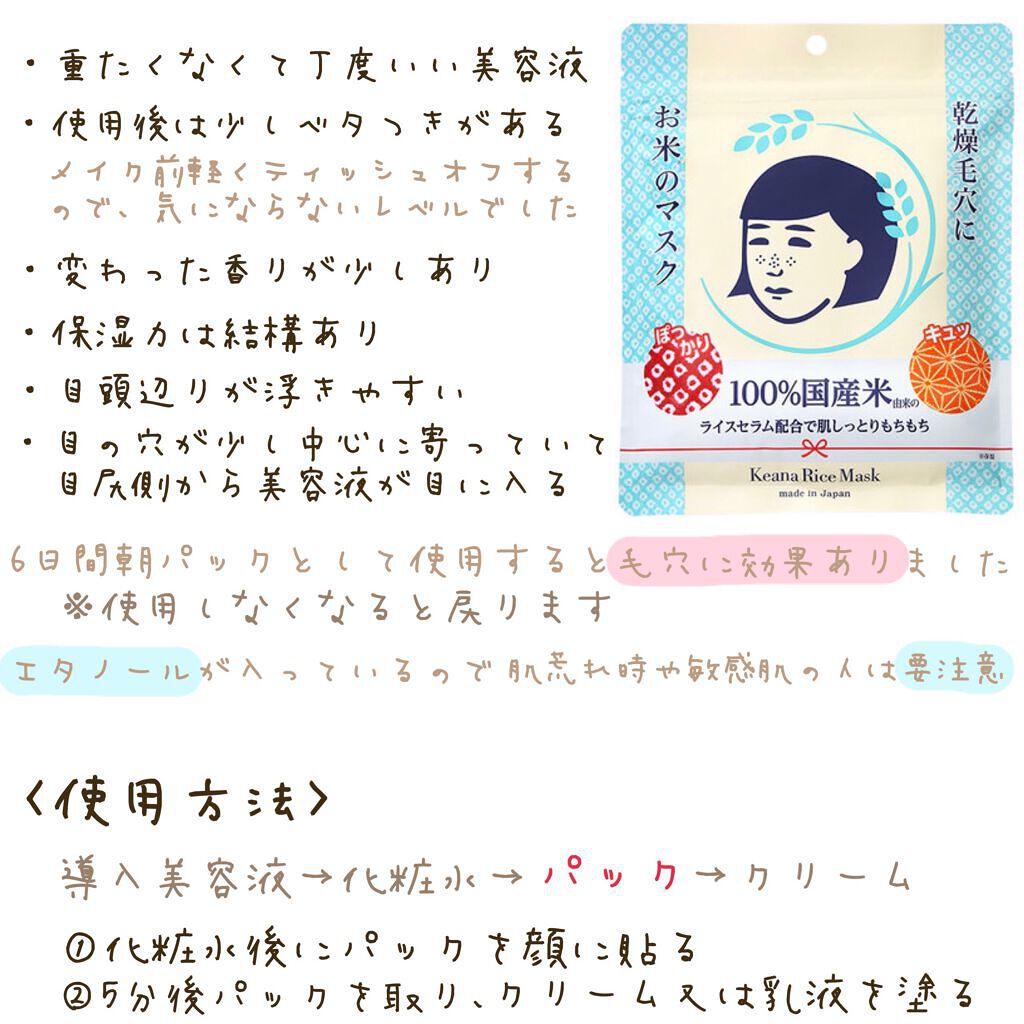 ・重たくなくて丁度いい美容液
・使用後は少しベタつきがある
メイク前軽くティッシュオフする
ので、気にならないレベルでした
・変わった香りが少しあり
・保湿力は結構あり
・目頭辺りが浮きやすい
・目の穴が少し中心に寄っていて
目尻側から美容液が目に入る
乾燥毛穴に
お米のマスク
ぽっかり
キュッ
100%国産米由来の
ライスセラム配合で肌しっとりもちもち
※保湿
Keana Rice Mask
made in Japan
6日間朝パックとして使用すると毛穴に効果ありました
※使用しなくなると戻ります
エタノールが入っているので肌荒れ時や敏感肌の人は要注意
〈使用方法〉
導入美容液→化粧水→パック→クリーム
①化粧水後にパックを顔に貼る
②5分後パックを取り、クリーム又は乳液を塗る